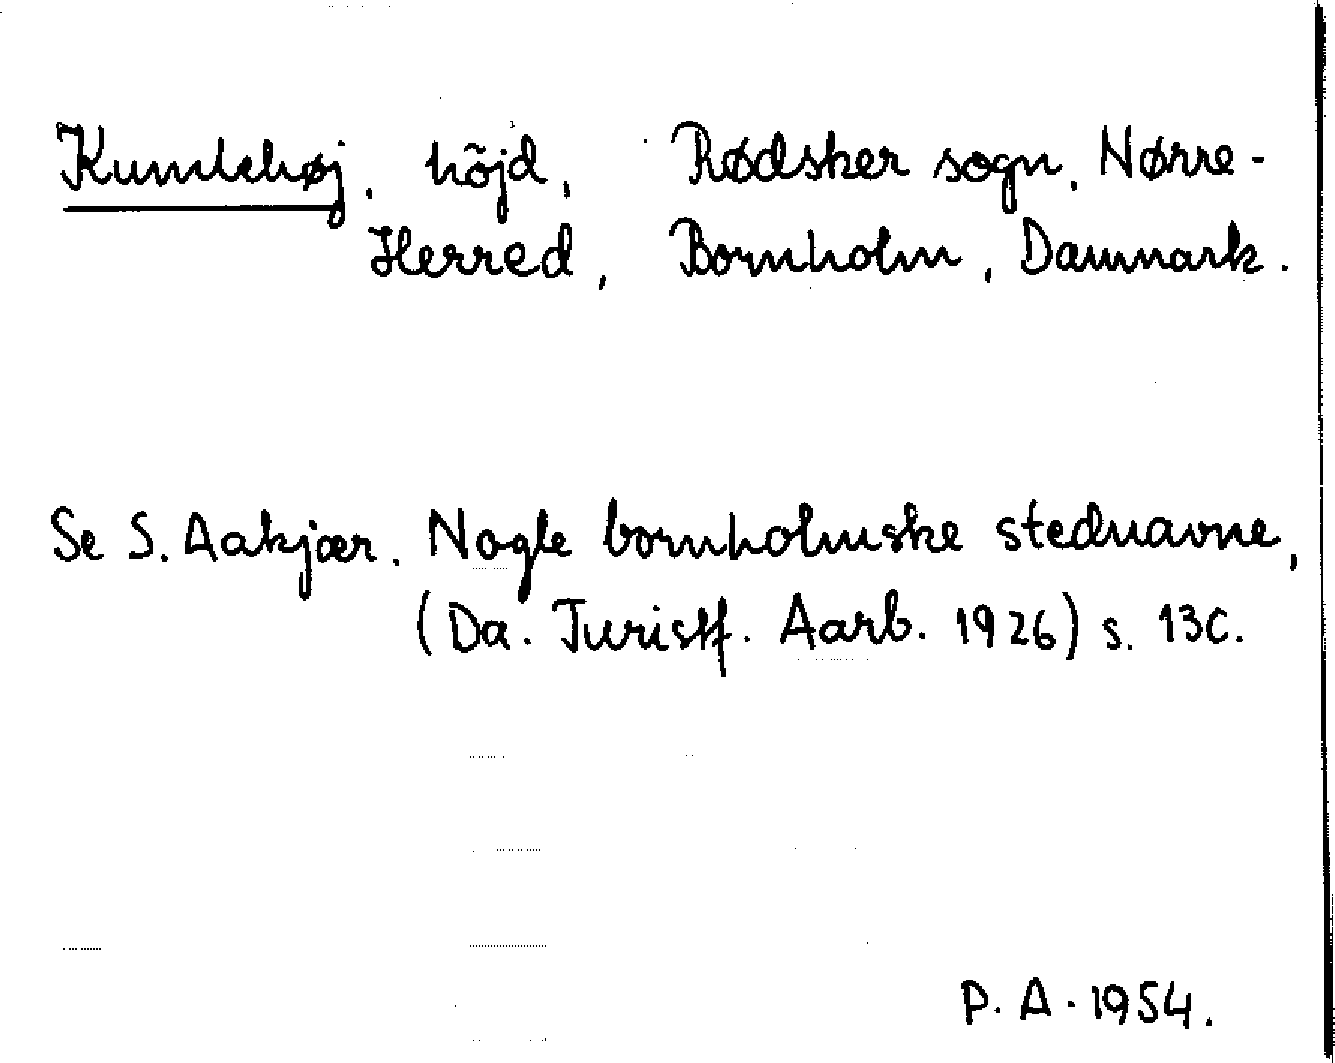 Kumlehøj, höjd, Rødsker sogn, Nørre-
Herred, Bornholm, Danmark.
Se S. Aakjær. Nogle bornholmske stednavne,
(Da. Turistf. Aarb. 1926) s. 130.
P. A. 1954.